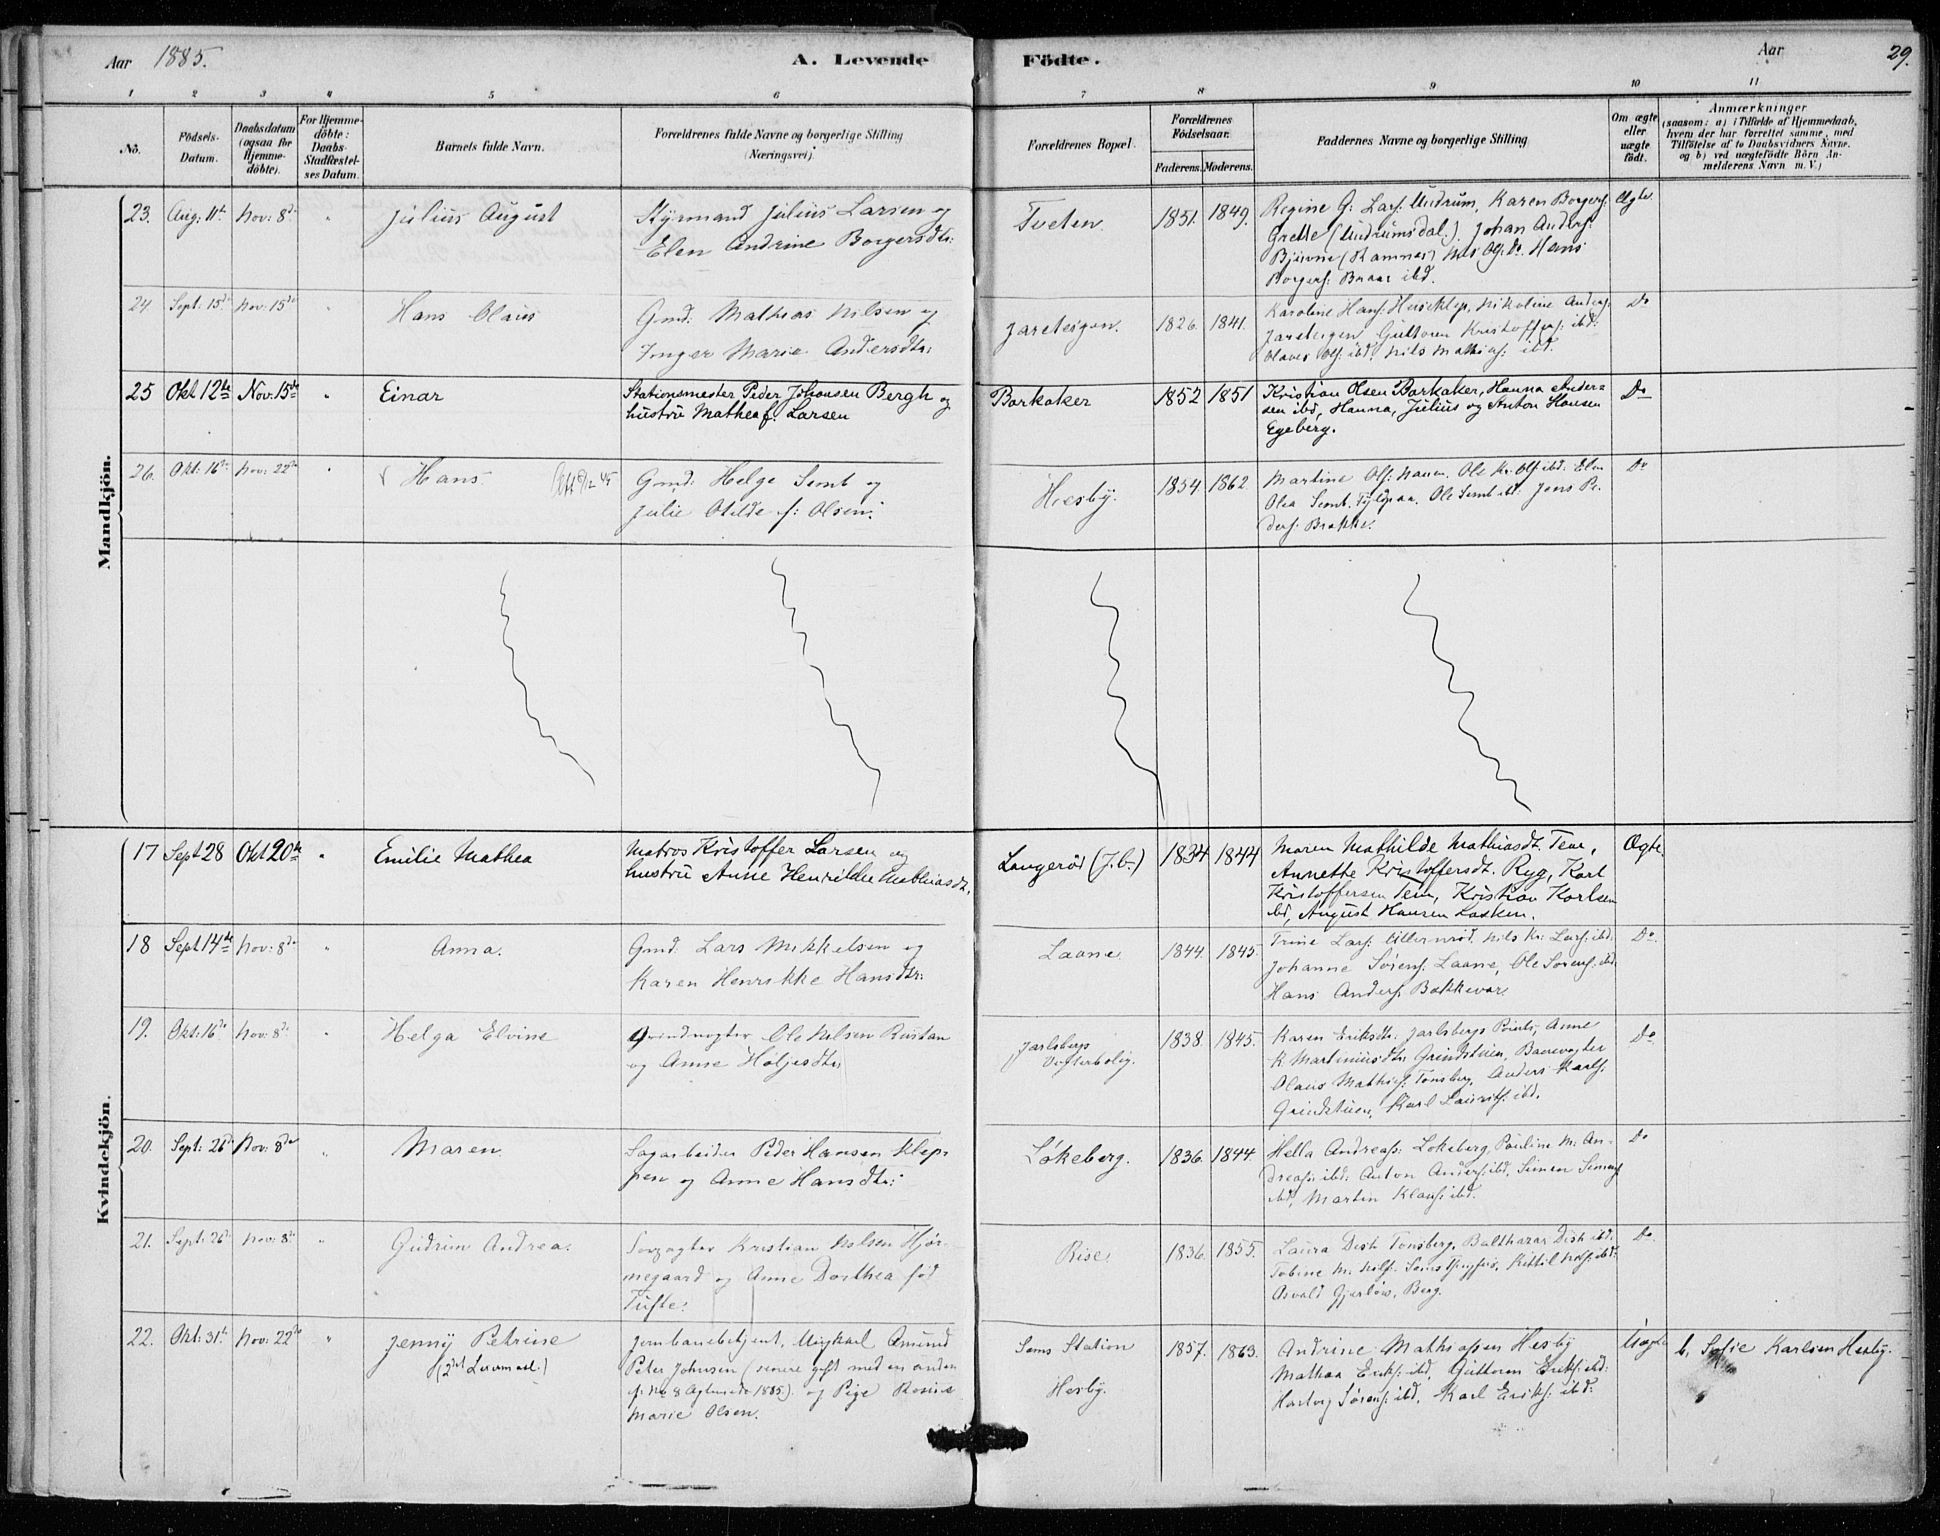 Aar 1885.
A. Levende
Födte.
Aar
29.
1 2 3 4 5 6 7 8 9 10 11
No.
Födsels-
Datum.
Daabsdatum
(ogsaa for
Hjemme-
döbte).
For Hjemme-
döbte:
Daabs-
Stadfæstel-
ses Datum.
Barnets fulde Navn.
Forældrenes fulde Navne og borgerlige Stilling
(Næringsvei).
Forældrenes Bopæl.
Forældrenes
Födselsaar.
Faderens. Moderens.
Faddernes Navne og borgerlige Stilling
Om ægte
eller
uægte
födt.
Anmærkninger
(saasom: a) i Tilfælde af Hjemmedaab,
hvem der har forrettet samme, med
Tilföielse af to Daabsvidners Navne.
og b) ved uægtefödte Börn An-
melderens Navn m. V.)
Mandkjön.
23. Aug: 11te Nov: 8de " Julius August
Styrmand Julius Larsen og
Elen Andrine Borgersdtr:
Tveten. 1851. 1849.
Regine G: Lars: Undrum, Karen Borgers:
Grette (Undrumsdal.). Johan Anders:
Bjerne (Ramnes) Nils Ols: do. Hans
Borgers: Braar ibd.
Ægte.
24. Sept: 15de Nov: 15de " Hans Olaus
Gmd: Mathias Nilsen og
Inger Marie Andersdtr:
Jareteigen. 1826. 1841.
Karoline Hans: Heieklep, Nikoline Anders:
Jareteigen Guttorm Kristoffers: ibd:
Olaves Ols: ibd. Nils Mathias: ibd.
Do
25 Okt 12te Nov. 15de " Einar
Stationsmester Peder Johansen Bergh og
hustru Mathea f. Larsen
Barkaker 1852 1851
Kristian Olsen Barkaker, Hanna Ander=
sen ibd, Hanna, Julius og Anton Hansen
Egeberg.
Do
26. Okt: 16de Nov: 22de " Hans
Gmd: Helge Semb og
Julie Otilde f: Olsen.
Hesby. 1854. 1862.
Martine Ols: Nauen. Ole Kr. Ols: ibd: Elen
Olea Semb. Ole Semb ibd: Jens Pe-
ders: Brekke.
Do
Kvindekjön.
17 Sept 28 Okt 20de " Emilie Mathea
Matros Kristoffer Larsen og
hustru Anne Henrikke Mathiasdt.
Langerød (J.b.) 1834 1844
Maren Mathilde Mathiasdt. Tem,
Annette Kristoffersdt. Ryg, Karl
Kristoffersen Tem, Kristian Karlsen
ibd, August Hansen Lasken.
Ægte.
18 Sept 14de Nov: 8de " Anna.
Gmd. Lars Mikkelsen og
Karen Henrikke Hansdtr:
Laane. 1844. 1845.
Trine Lars: Ullernrød. Nils Kr. Lars: ibd.
Johanne Sørens: Laane, Ole Sørens: ibd.
Hans Anders: Bakkevar.
Do.
19. Okt: 16de Nov: 8de " Helga Elvine
Grindvogter Ole Nilsen Rustan
og Anne Holjesdtr:
Jarlsbergs
Vogterbolig. 1838. 1845.
Karen Eriksdtr. Jarlsbergs Points, Anne
K. Martiniusdtr. Grindstuen, Banevogter
Olaus Mathis: Tønsberg, Anders Karls.
Grindstuen, Karl Laurits: ibd.
Do
20. Sept: 21de Nov: 8de " Maren.
Sagarbeider Peder Hansen Klep-
pen og Anne Hansdtr:
Løkeberg. 1836. 1844.
Hella Andreas: Løkeberg, Pauline M: An-
dreas: ibd: Anton Anders: ibd, Simen Simens:
ibd, Martin Klaus: ibd.
Do
21. Sept: 26de Nov: 8de " Gudrun Andrea.
Kristian Nilsen Hjør-
negaard og Anne Dorthea fød
Tufte.
Rise. 1836. 1855.
Laura Disk Tønsberg, Balthazar Disk ibd.
Tobine M. Nils: Kittil Nils: ibd:
Osvald Gjerløw, Berg.
Do.
22. Okt: 31te Nov: 22de " Jenny Petrine
(2det Leiermaal.)
Jernbanebetjent, Ungkarl Amund
Peter Johnsen (senere gift med en anden
f: No 8 Ægteviede 1885). og Pige Rosine
Marie Olsen.
Sems Station
Hesby. 1857. 1863.
Andrine Mathiassen Hesby
Mathea Eriks: ibd, Guttorm Eriks: ibd:
Hartvig Sørens: ibd, Karl Eriks: ibd:
Uægte
b, Sofie Karlsen Hesby.